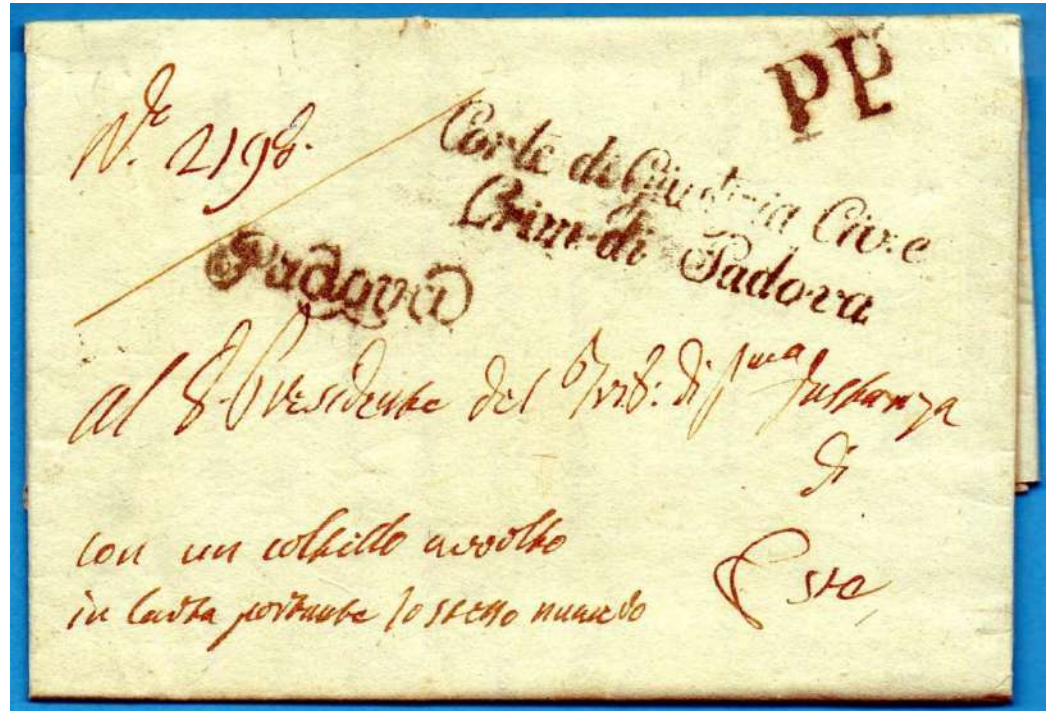 PP
N.º 2198.
Corte di Giustizia Civ. e
Crim. di Padova
Padova
Al S.r Presidente del Trib: di Pma Instanza
di
Este
con un coltello avvolto
in carta portante lo stesso numero